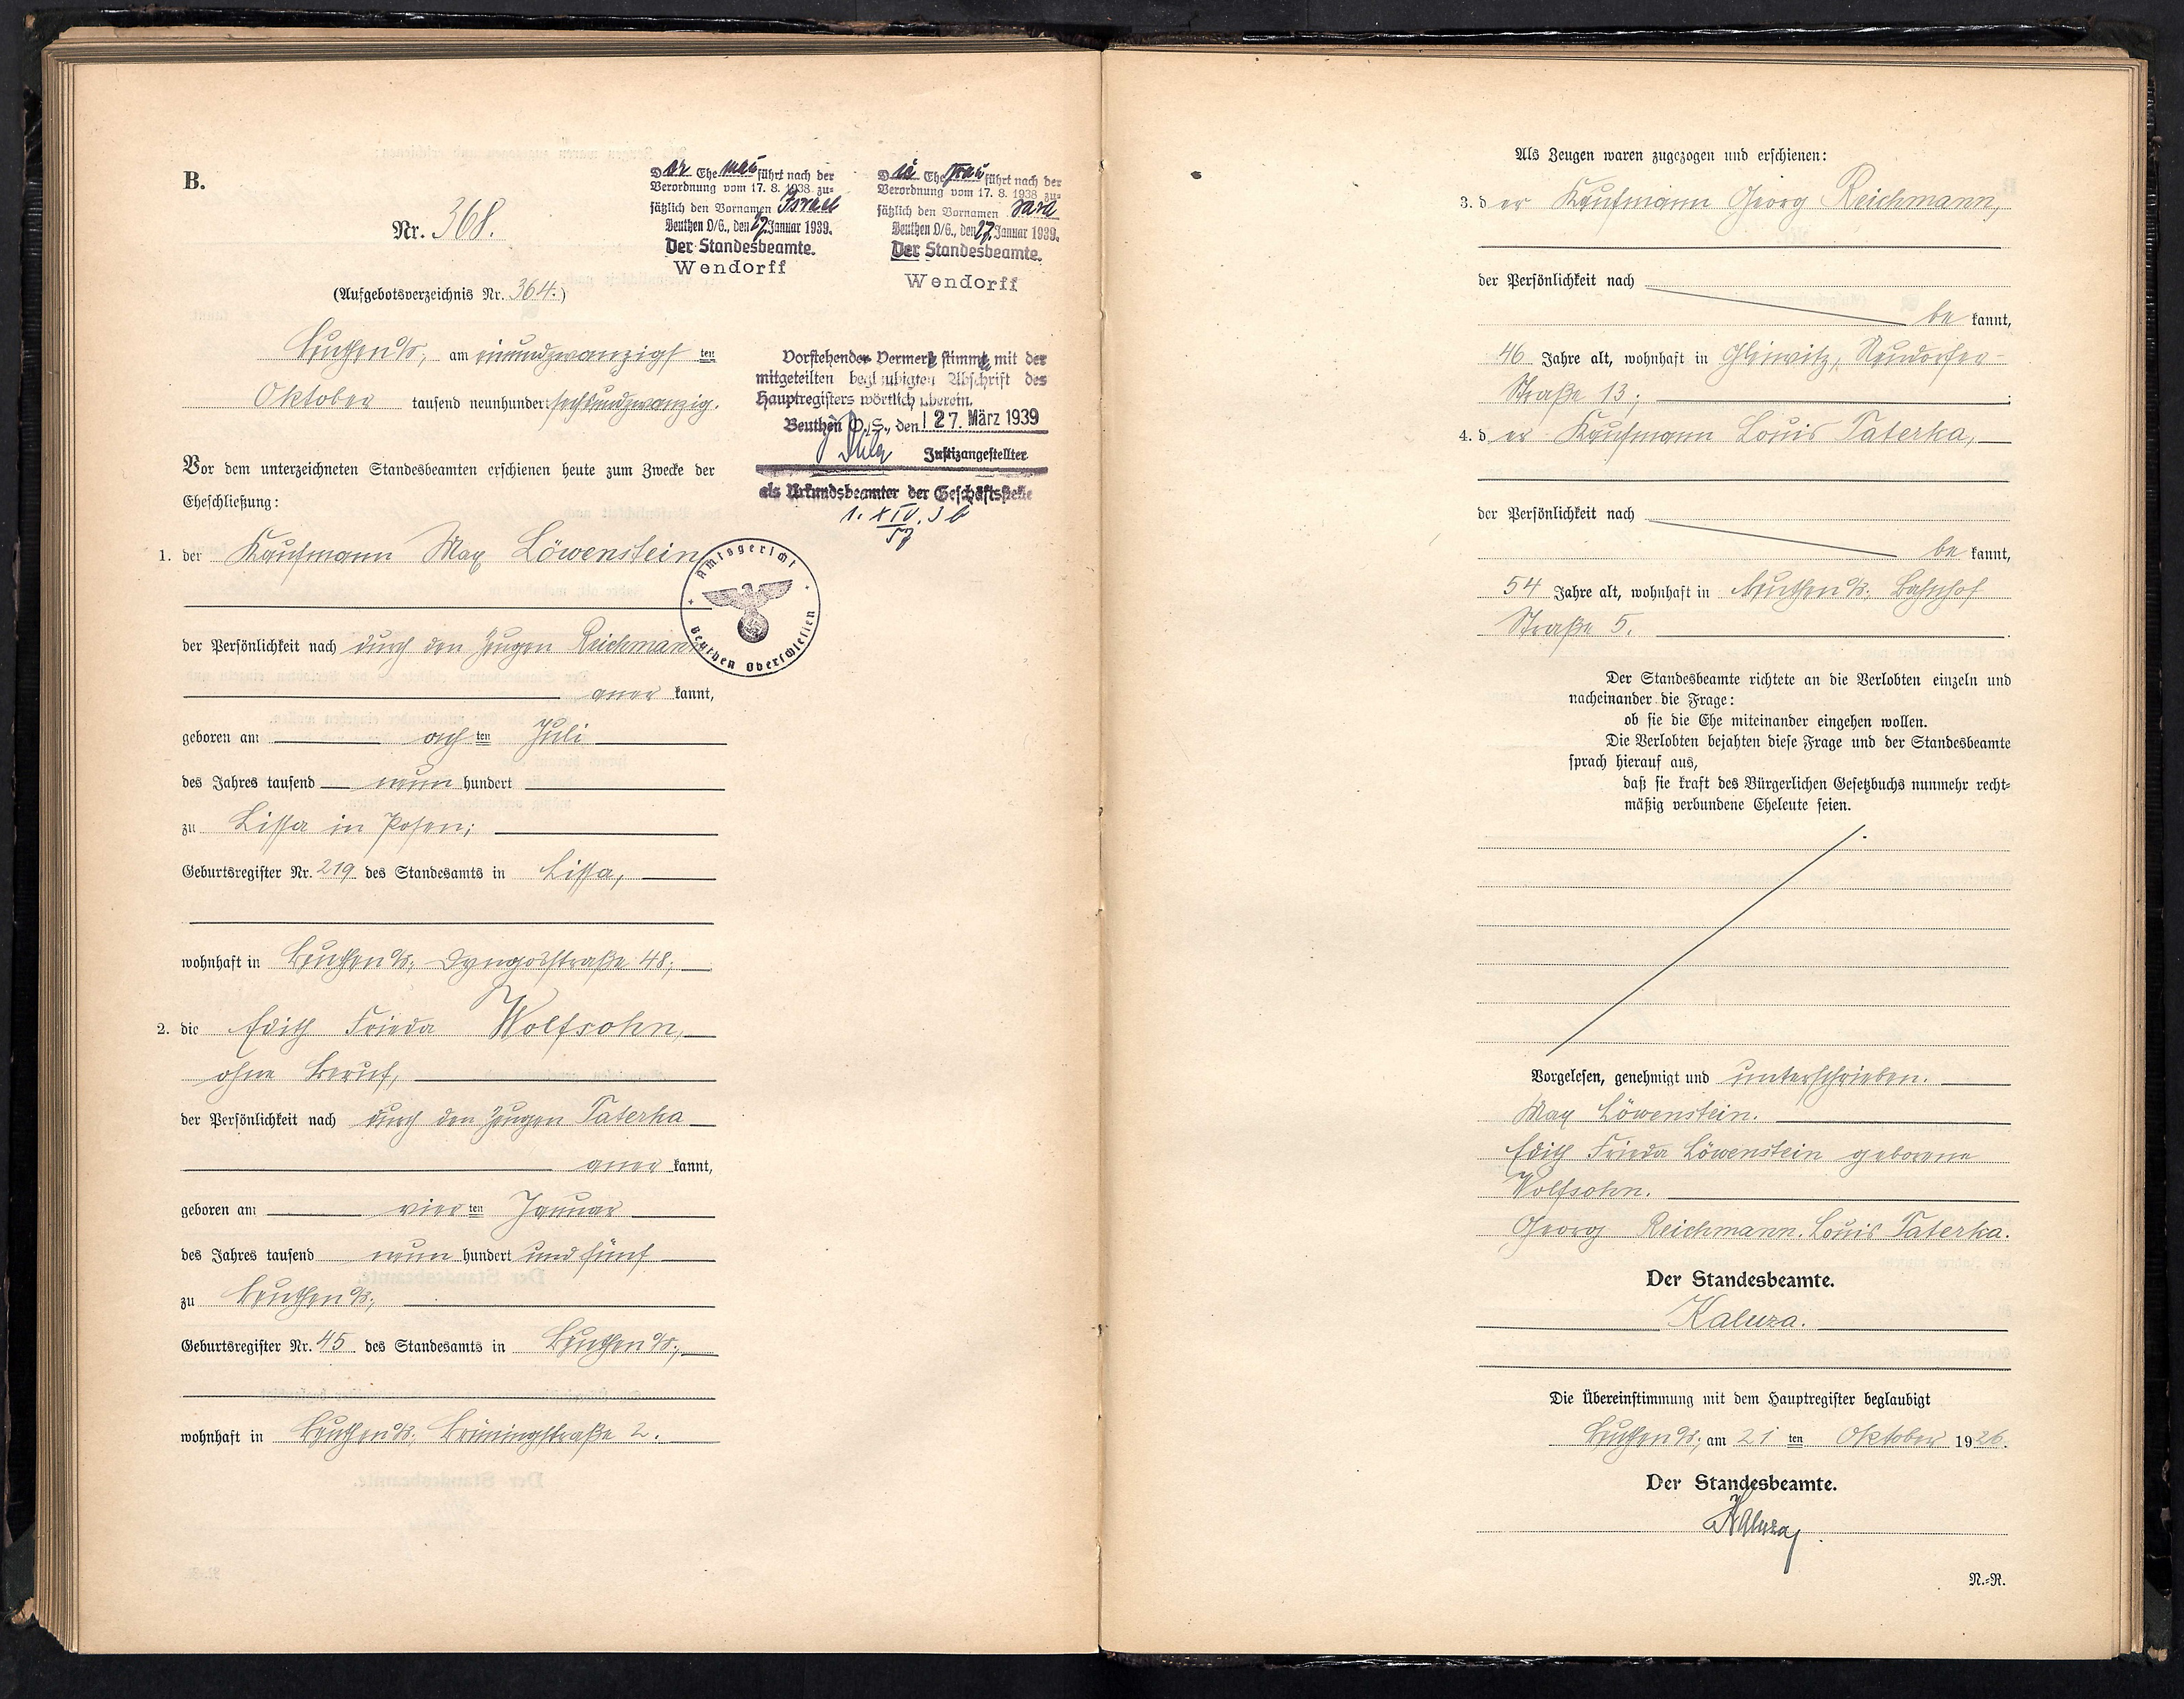 B.
Nr. 368.
(Aufgebotsverzeichnis Nr. 364.)
Der Ehemann führt nach der
Verordnung vom 17. 8. 1938 zu=
sätzlich den Vornamen Israel
Beuthen O/S., den 17. Januar 1939.
Der Standesbeamte.
Wendorff
Die Ehefrau führt nach der
Verordnung vom 17. 8. 1938 zu=
sätzlich den Vornamen Sara
Beuthen O/S., den 17. Januar 1939.
Der Standesbeamte.
Wendorff
Beuthen O/S, am einundzwanzigsten
Oktober tausend neunhundert sechsundzwanzig.
Vorstehender Vermerk stimmt mit der
mitgeteilten beglaubigten Abschrift des
Hauptregisters wörtlich überein.
Beuthen O.S., den 27. März 1939
Justizangestellter
als Urkundsbeamter der Geschäftsstelle
Amtsgericht
Beuthen Oberschlesien
Vor dem unterzeichneten Standesbeamten erschienen heute zum Zwecke der
Eheschließung:
1. der Kaufmann Max Löwenstein,
der Persönlichkeit nach durch den Zeugen Reichmann
anerkannt,
geboren am achten Juli
des Jahres tausend neunhundert
zu Lissa in Posen;
Geburtsregister Nr. 219 des Standesamts in Lissa,
wohnhaft in Beuthen O/S, Dyngosstraße 48;
2. die Edith Frieda Wolfsohn,
ohne Beruf,
der Persönlichkeit nach durch den Zeugen Taterka
anerkannt,
geboren am vierten Januar
des Jahres tausend neunhundert und fünf
zu Beuthen O/S,
Geburtsregister Nr. 45 des Standesamts in Beuthen O/S,
wohnhaft in Beuthen O/S, Brüningstraße 2.
Als Zeugen waren zugezogen und erschienen:
3. der Kaufmann Georg Reichmann,
der Persönlichkeit nach
bekannt,
46 Jahre alt, wohnhaft in Gleiwitz, Neudorfer-
Straße 13;
4. der Kaufmann Louis Taterka,
der Persönlichkeit nach
bekannt,
54 Jahre alt, wohnhaft in Beuthen O/S, Bahnhof
Straße 5.
Der Standesbeamte richtete an die Verlobten einzeln und
nacheinander die Frage:
ob sie die Ehe miteinander eingehen wollen.
Die Verlobten bejahten diese Frage und der Standesbeamte
sprach hierauf aus,
daß sie kraft des Bürgerlichen Gesetzbuchs nunmehr recht=
mäßig verbundene Eheleute seien.
Vorgelesen, genehmigt und unterschrieben.
Max Löwenstein.
Edith Frieda Löwenstein geborene
Wolfsohn.
Georg Reichmann. Louis Taterka.
Der Standesbeamte.
Kaluza.
Die Übereinstimmung mit dem Hauptregister beglaubigt
Beuthen O/S, am 21ten Oktober 1926.
Der Standesbeamte.
Kaluza
N.=R.